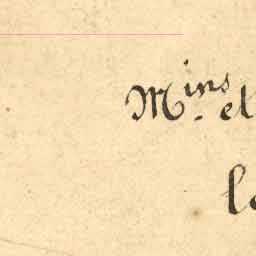 Mins et